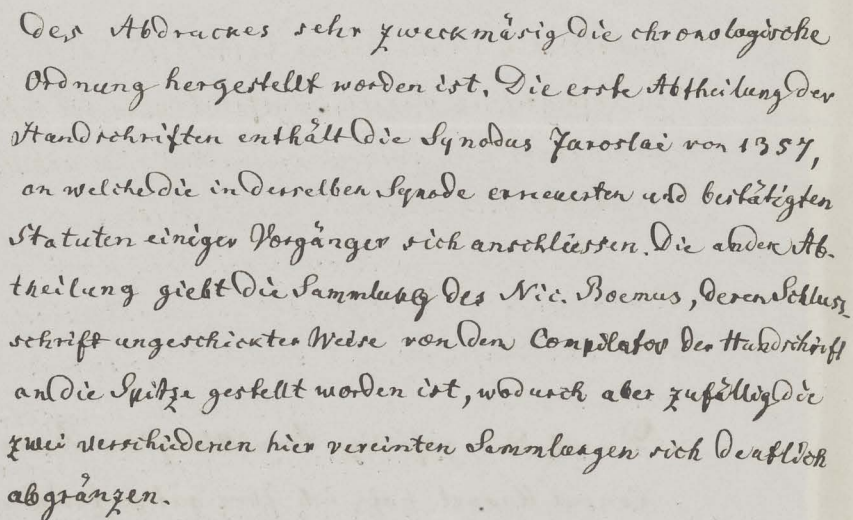 des Abdruckes sehr zweckmäsig die chronologische
Ordnung hergestellt worden ist. Die erste Abtheilung der
Handschriften enthält die Synodus Jaroslai von 1357,
an welche die in derselben Synode erneuerten und bestätigten
Statuten einiger Vorgänger sich anschliessen. Die andere Ab-
theilung giebt die Sammlung des Nic. Boemus, deren Schluss-
schrift ungeschickter Weise von dem Compilator der Handschrift
an die Spitze gestellt worden ist, wodurch aber zufällig die
zwei verschiedenen hier vereinten Sammlungen sich deutlich
abgränzen.